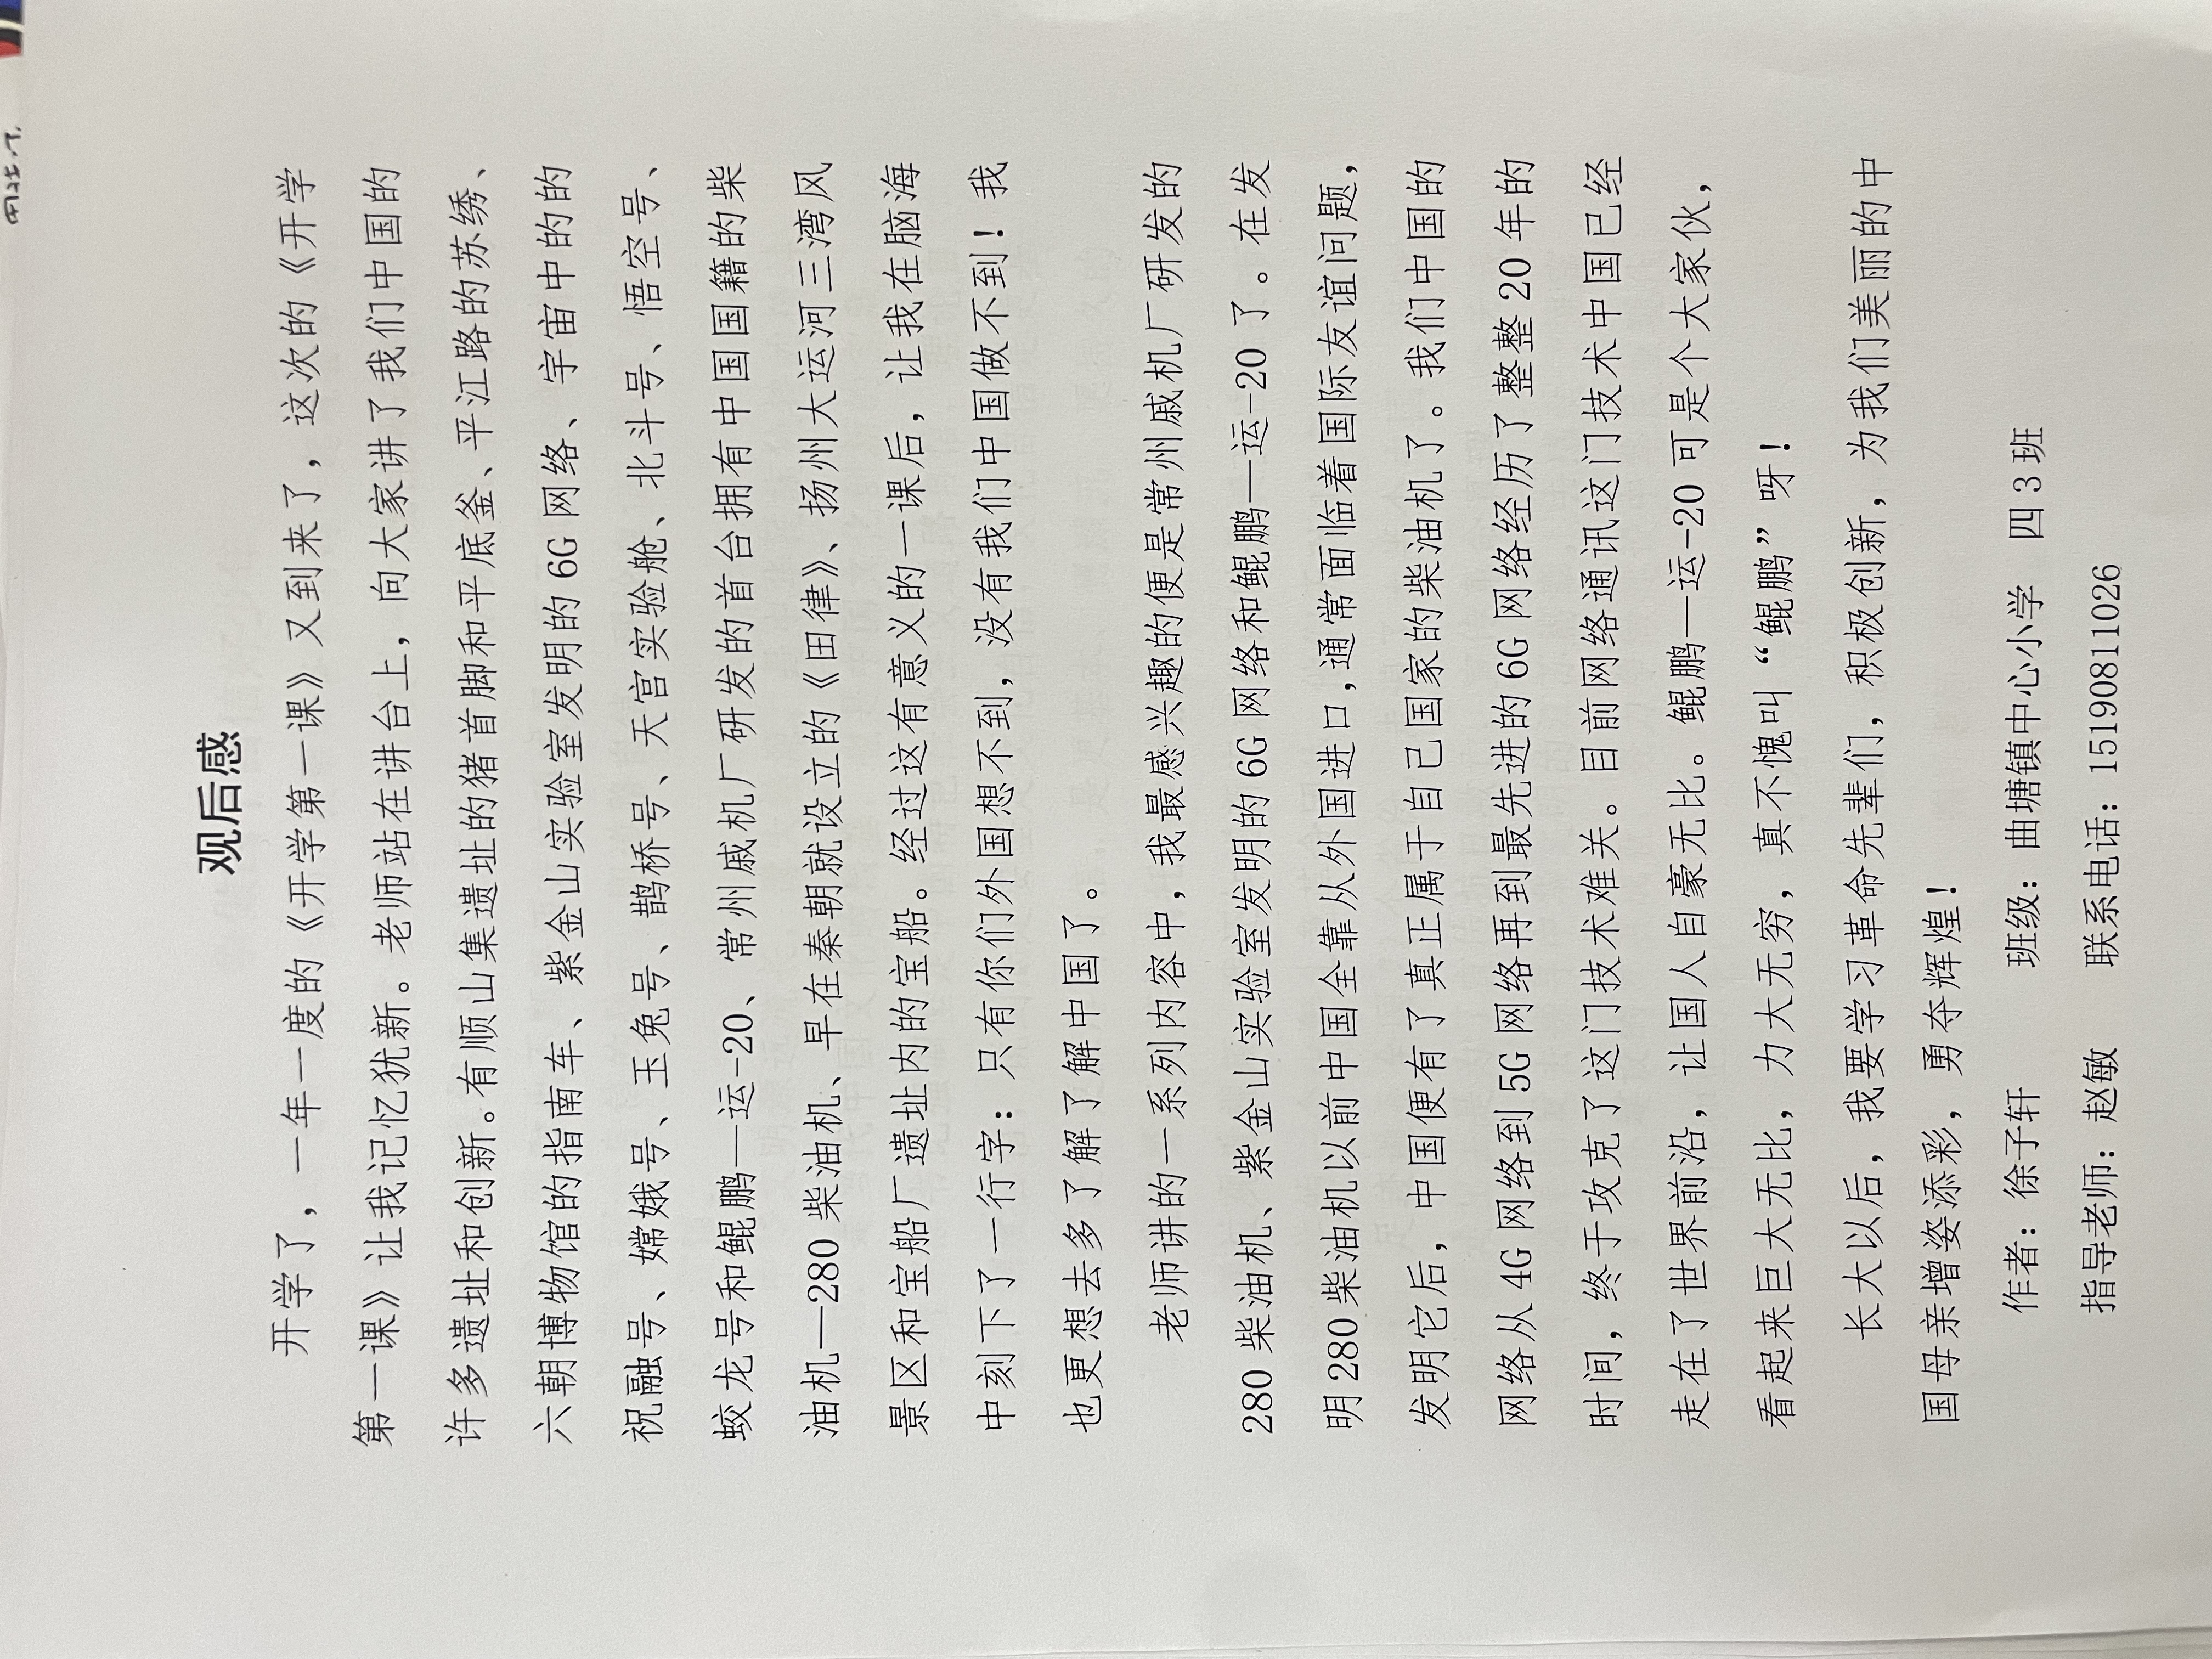 观后感
开学了，一年一度的《开学第一课》又到来了，这次的《开学
第一课》让我记忆犹新。老师站在讲台上，向大家讲了我们中国的
许多遗址和创新。有顺山集遗址的猪首脚和平底釜、平江路的苏绣、
六朝博物馆的指南车、紫金山实验室发明的 6G 网络、宇宙中的的
祝融号、嫦娥号、玉兔号、鹊桥号、天宫实验舱、北斗号、悟空号、
蛟龙号和鲲鹏—运-20、常州戚机厂研发的首台拥有中国国籍的柴
油机—280 柴油机、早在秦朝就设立的《田律》、扬州大运河三湾风
景区和宝船厂遗址内的宝船。经过这有意义的一课后，让我在脑海
中刻下了一行字：只有你们外国想不到，没有我们中国做不到！我
也更想去多了解了解中国了。
老师讲的一系列内容中，我最感兴趣的便是常州戚机厂研发的
280 柴油机、紫金山实验室发明的 6G 网络和鲲鹏—运-20 了。在发
明 280 柴油机以前中国全靠从外国进口,通常面临着国际友谊问题，
发明它后，中国便有了真正属于自己国家的柴油机了。我们中国的
网络从 4G 网络到 5G 网络再到最先进的 6G 网络经历了整整 20 年的
时间，终于攻克了这门技术难关。目前网络通讯这门技术中国已经
走在了世界前沿，让国人自豪无比。鲲鹏—运-20 可是个大家伙，
看起来巨大无比，力大无穷，真不愧叫“鲲鹏”呀！
长大以后，我要学习革命先辈们，积极创新，为我们美丽的中
国母亲增姿添彩，勇夺辉煌！
作者：徐子轩 班级：曲塘镇中心小学 四 3 班
指导老师：赵敏 联系电话：15190811026